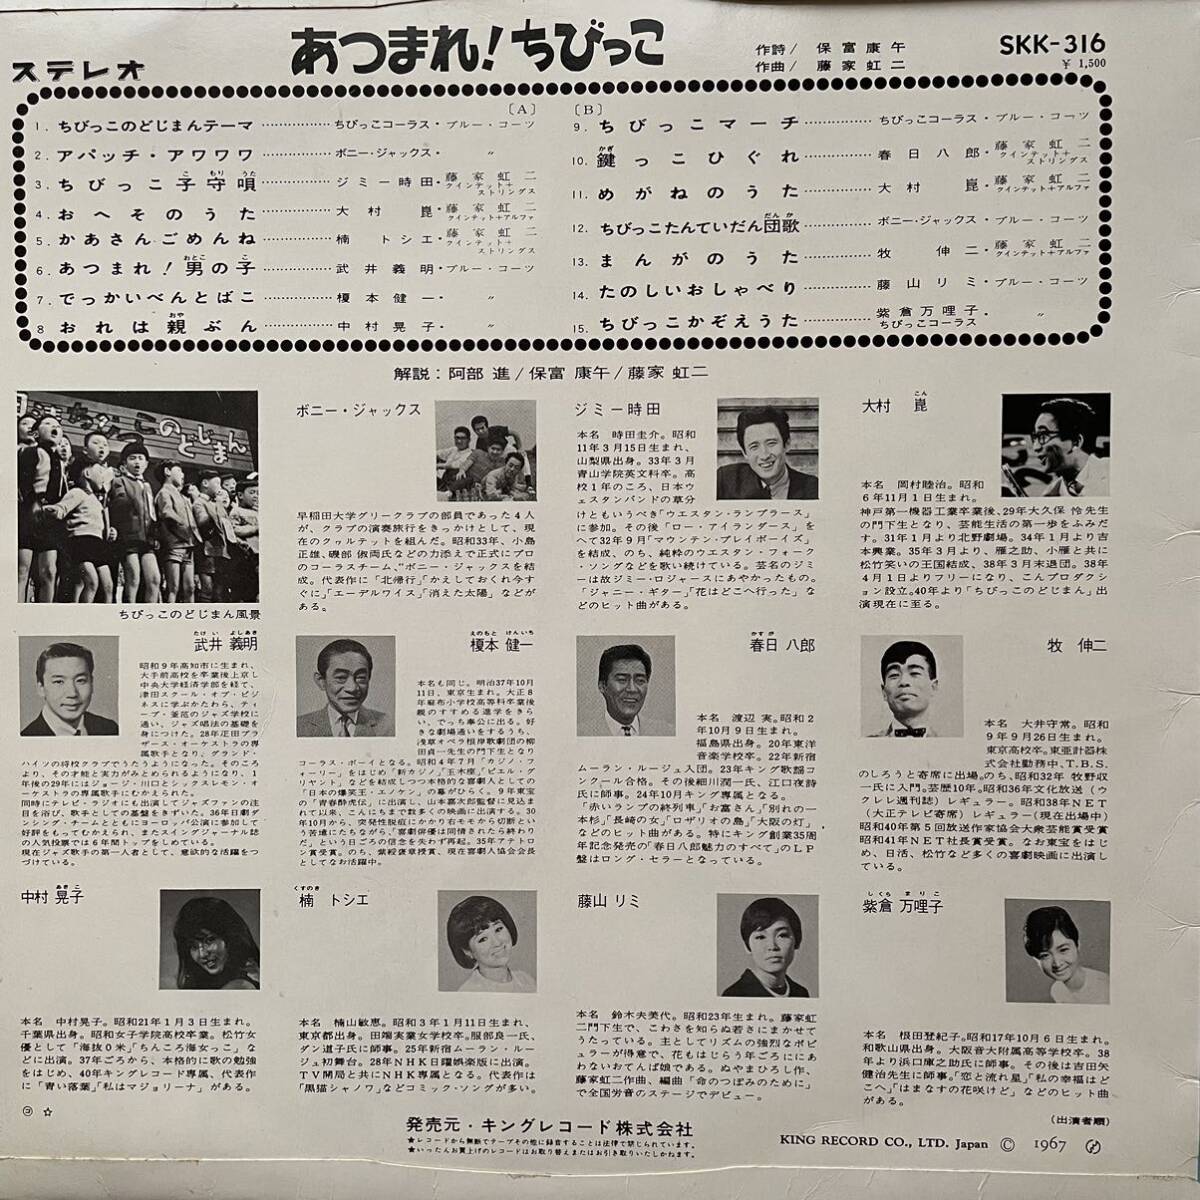 ステレオ
あつまれ！ちびっこ
作詩/ 保富康午
作曲/ 藤家虹二
SKK-316
￥1,500
〔A〕
1. ちびっこのどじまんテーマ……………ちびっこコーラス・ブルー・コーツ
2. アパッチ・アワワワ……………ボニー・ジャックス・ 〃
3. ちびっこ子守唄……………ジミー時田・藤家虹二クインテット+ストリングス
4. おへそのうた……………大村崑・藤家虹二クインテット+アルファ
5. かあさんごめんね……………楠トシエ・藤家虹二クインテット+ストリングス
6. あつまれ！男の子……………武井義明・ブルー・コーツ
7. でっかいべんとばこ……………榎本健一・ 〃
8 おれは親ぶん……………中村晃子・ 〃
〔B〕
9. ちびっこマーチ……………ちびっこコーラス・ブルー・コーツ
10. 鍵っこひぐれ……………春日八郎・藤家虹二クインテット+ストリングス
11. めがねのうた……………大村崑・藤家虹二クインテット+アルファ
12. ちびっこたんていだん団歌……………ボニー・ジャックス・ブルー・コーツ
13. まんがのうた……………牧伸二・藤家虹二クインテット+アルファ
14. たのしいおしゃべり……………藤山リミ・ブルー・コーツ
15. ちびっこかぞえうた……………紫倉万哩子・ちびっこコーラス 〃
解説：阿部 進/保富 康午/藤家 虹二
ちびっこのどじまん
ちびっこのどじまん風景
ボニー・ジャックス
早稲田大学グリークラブの部員であった4人
が、クラブの演奏旅行をきっかけとして、現
在のクヮルテットを組んだ。昭和33年、小島
正雄、磯部 俶両氏などの力添えで正式にプロ
のコーラスチーム、"ボニー・ジャックスを結
成。代表作に「北帰行」「かえしておくれ今す
ぐに」「エーデルワイス」「消えた太陽」などが
ある。
ジミー時田
本名 時田圭介。昭和
11年3月15日生まれ、
山梨県出身。33年3月
青山学院英文科卒。高
校1年のころ、日本ウ
ェスタンバンドの草分
けともいうべき「ウエスタン・ランブラース」
に参加。その後「ロー・アイランダース」を
へて32年9月「マウンテン・プレイボーイズ」
を結成、のち、純粋のウエスタン・フォーク
・ソングなどを歌い続けている。芸名のジミ
ーは故ジミー・ロジャースにあやかったもの。
「ジャニー・ギター」「花はどこへ行った」な
どのヒット曲がある。
大村 崑
こん
本名 岡村睦治。昭和
6年11月1日生まれ。
神戸第一機器工業卒業後、29年大久保 怜先生
の門下生となり、芸能生活の第一歩をふみだ
す。31年1月より北野劇場。34年1月より吉
本興業。35年3月より、雁之助、小雁と共に
松竹笑いの王国結成、38年3月末退団。38年
4月1日よりフリーになり、こんプロダクシ
ョン設立。40年より「ちびっこのどじまん」出
演現在に至る。
武井 義明
たけい よしあき
昭和9年高知市に生まれ、
大手前高校を卒業後上京し
中央大学経済学部を経て、
津田スクール・オブ・ビジ
ネスに学ぶかたわら、ティ
ーブ・釜萢のジャズ学校に
通い、ジャズ唱法の基礎を
身につけた。28年疋田ブラ
ザース・オーケストラの専
属歌手となり、グランド・
ハイツの将校クラブでうたうようになった。そのころ
より、その才能と実力がみとめられるようになり、1
年後の29年にはジョージ・川口とシックスレモン・オ
ーケストラの専属歌手にむかえられた。
同時にテレビ・ラジオにも出演してジャズファンの注
目を浴び、歌手としての基盤をきずいた。36年日劇ダ
ンシング・チームとともにヨーロッパ公演に参加して
好評をもってむかえられ、またスイングジャーナル誌
の人気投票では6年間トップをしめている。
現在ジャズ歌手の第一人者として、意欲的な活躍をつ
づけている。
榎本 健一
えのもと けんいち
本名も同じ。明治37年10月
11日、東京生まれ。大正8
年麻布小学校高等科卒業後
親のすすめる進学をきら
い、でっち奉公に出る。好
きな劇場通いをするうち、
浅草オペラ根岸歌劇団の柳
田貞一先生の門下生となり
コーラス・ボーイとなる。昭和4年7月「カジノ・フ
ォーリー」をはじめ「新カジノ」「玉木座」「ピエル・グ
リヤント」などを結成しつつ本格的な喜劇人としての
「日本の爆笑王・エノケン」の幕がひらく。9年東宝
の「青春酔虎伝」に出演し、山本嘉次郎監督に見込ま
れて以来、こんにちまで数多くの映画に出演する。30
年10月から、突発性脱疽にかかり右モモから切断とい
う苦境にたちながら、「喜劇俳優は同情されたら終わり
だ」という日ごろの信念を失わず再起。35年アテトロ
ン賞受賞。のち、紫綬褒章授賞、現在喜劇人協会会長
としてなお活躍中。
春日 八郎
かすが
本名 渡辺 実。昭和2
年10月9日生まれ。
福島県出身。20年東洋
音楽学校卒。22年新宿
ムーラン・ルージュ入団。23年キング歌謡コ
ンクール合格。その後細川潤一氏、江口夜詩
氏に師事。24年10月キング専属となる。
「赤いランプの終列車」「お富さん」「別れの一
本杉」「長崎の女」「ロザリオの島」「大阪の灯」
などのヒット曲がある。特にキング創業35周
年記念発売の「春日八郎魅力のすべて」のLP
盤はロング・セラーとなっている。
牧 伸二
本名 大井守常。昭和
9年9月26日生まれ。
東京高校卒。東亜計器株
式会社勤務中、T.B.S.
のしろうと寄席に出場。のち、昭和32年 牧野収
一氏に入門。芸歴10年。昭和36年文化放送（ウ
クレレ週刊誌）レギュラー。昭和38年NET
（大正テレビ寄席）レギュラー（現在出場中）
昭和40年第5回放送作家協会大衆芸能賞受賞
昭和41年NET社長賞受賞。なお東宝をはじ
め、日活、松竹など多くの喜劇映画に出演し
ている。
中村 晃子
あきこ
本名 中村晃子。昭和21年1月3日生まれ。
千葉県出身。昭和女子学院高校卒業。松竹女
優として「海抜0米」「ちんころ海女っこ」な
どに出演。37年ごろから、本格的に歌の勉強
をはじめ、40年キングレコード専属、代表作
に「青い落葉」「私はマジョリーナ」がある。
楠 トシエ
くすのき
本名 楠山敏恵。昭和3年1月11日生まれ、
東京都出身。田端実業女学校卒。服部良一氏、
ダン道子氏に師事。25年新宿ムーラン・ルー
ジュ初舞台。28年NHK日曜娯楽版に出演。
TV開局と共にNHK専属となる。代表作は
「黒猫シャノワ」などコミック・ソングが多い。
藤山 リミ
本名 鈴木夫美代。昭和23年生まれ。藤家虹
二門下生で、こわさを知らぬ若さにまかせて
うたっている。主としてリズムの強烈なポピ
ュラーが得意で、花もはじらう年ごろににあ
わないおてんば娘である。ぬやまひろし作、
藤家虹二作曲、編曲「命のつぼみのために」
で全国労音のステージでデビュー。
紫倉 万哩子
しくら まりこ
本名 根田登紀子。昭和17年10月6日生まれ。
和歌山県出身。大阪音大附属高等学校卒。38
年より浜口庫之助氏に師事。その後は吉田矢
健治先生に師事。「恋と流れ星」「私の幸福はど
こへ」「はまなすの花咲けど」などのヒット曲
がある。
（出演者順）
ヨ ☆
発売元・キングレコード株式会社
★レコードから無断でテープその他に録音することは法律で禁じられています。
★いったんお買上げのレコードはお取り替えまたはお引き取りいたしかねます。
KING RECORD CO., LTD. Japan Ⓒ 1967